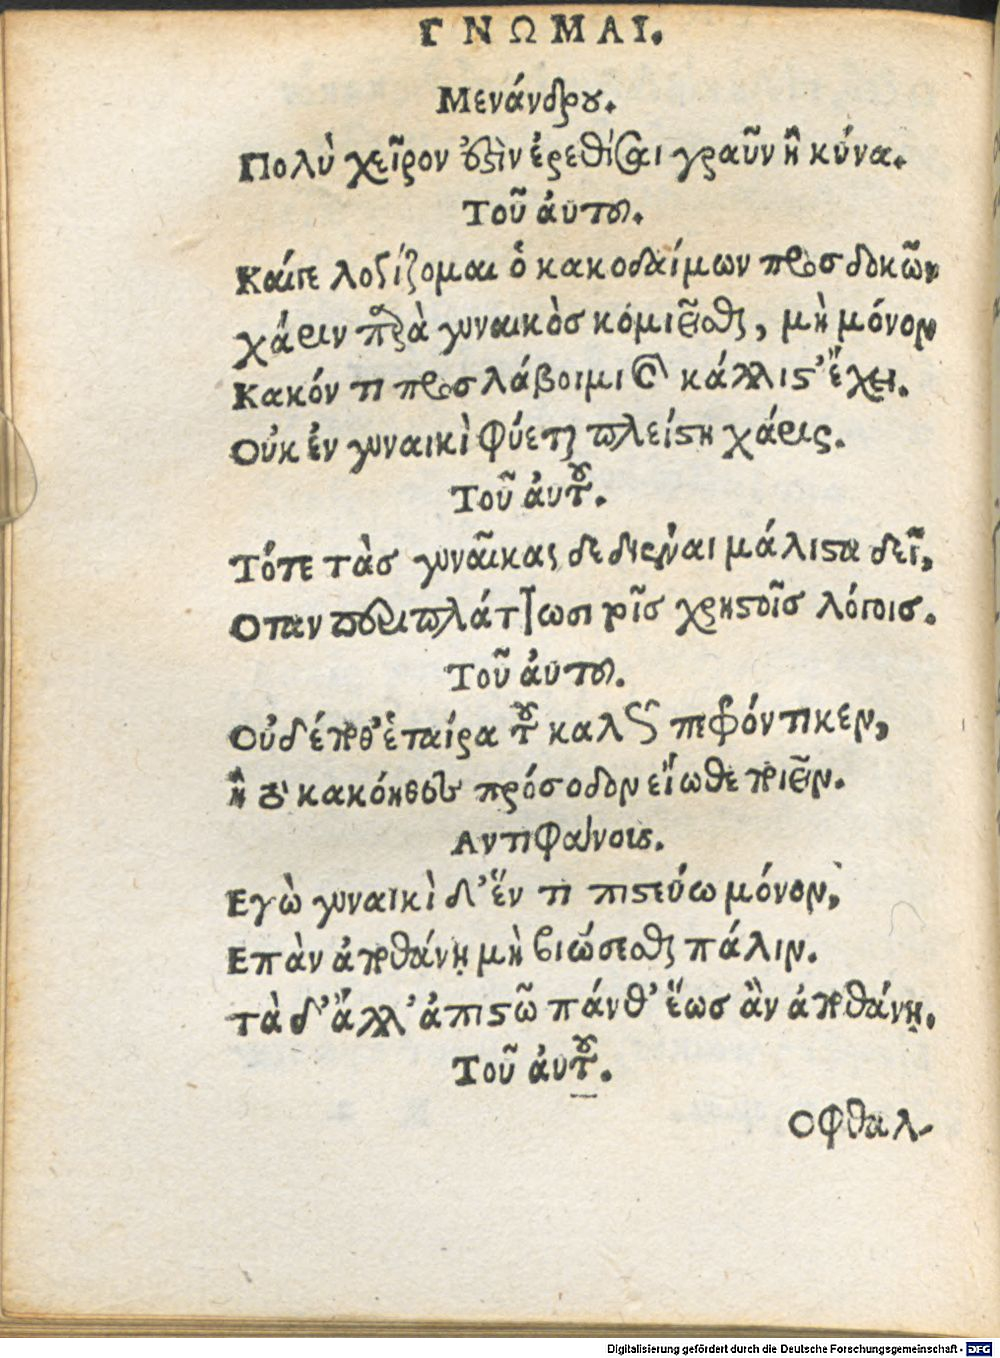 ΓΝΩΜΑΙ.
Μενάνδρου.
Πολὺ χεῖρον ὅστὶν ἐρεθίσαι γραῦν ἢ κύνα.
Τοῦ ἀυτου.
Καίπε λογίζομαι ὁ κακοδαίμων προσδοκῶν
χάριν παρὰ γυναικὸσ κόμιεῖσθαι, μὴ μόνον
Κακόν τι προσλάβοιμι κάλλιστ' ἔχει.
Οὐκ ἐν γυναικὶ φύεται πλείστη χάρις.
Τοῦ ἀυτοῦ.
Τότε τὰσ γυναῖκας δεδιέναι μάλιστα δεῖ,
Οταν περιπλάττωσι τοῖσ χρηστοῖσ λόγοισ.
Τοῦ ἀυτου.
Οὐδέποθ' ἑταίρα τοῦ καλῶς πεφόντικεν,
ἢ τὸ κακόηθες πρόσοδον εἴωθε ποιεῖν.
Αντιφάνους.
Εγὼ γυναικὶ δ' ἕν τι πιστεύω μόνον,
Επὰν ἀποθάνῃ μὴ βιώσεσθαι πάλιν.
τὰ δ' ἄλλ' ἀπιστῶ πάνθ' ἕωσ ἂν ἀποθάνῃ.
Τοῦ ἀυτοῦ.
Οφθαλ-
Digitalisierung gefördert durch die Deutsche Forschungsgemeinschaft - DFG